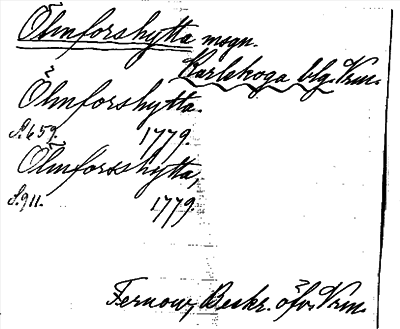 Ölmforshytta msgn.
Karlskoga blg. Vrm.
Ölmforshytta.
S. 659. 1779.
Ölmforsshytta,
S. 911. 1779.
Fernow, Beskr. öfv. Vrm.